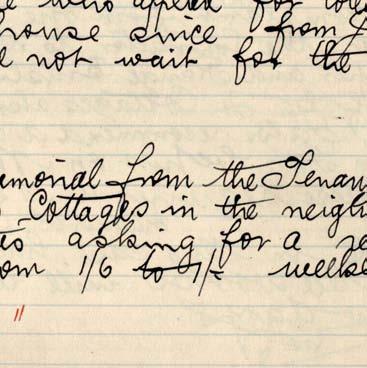 who applied for
house since from
not wait for the
emorial from the Tenan
Cottages in the neigh
asking for a re
om 1/6 to 1/- weekl
"